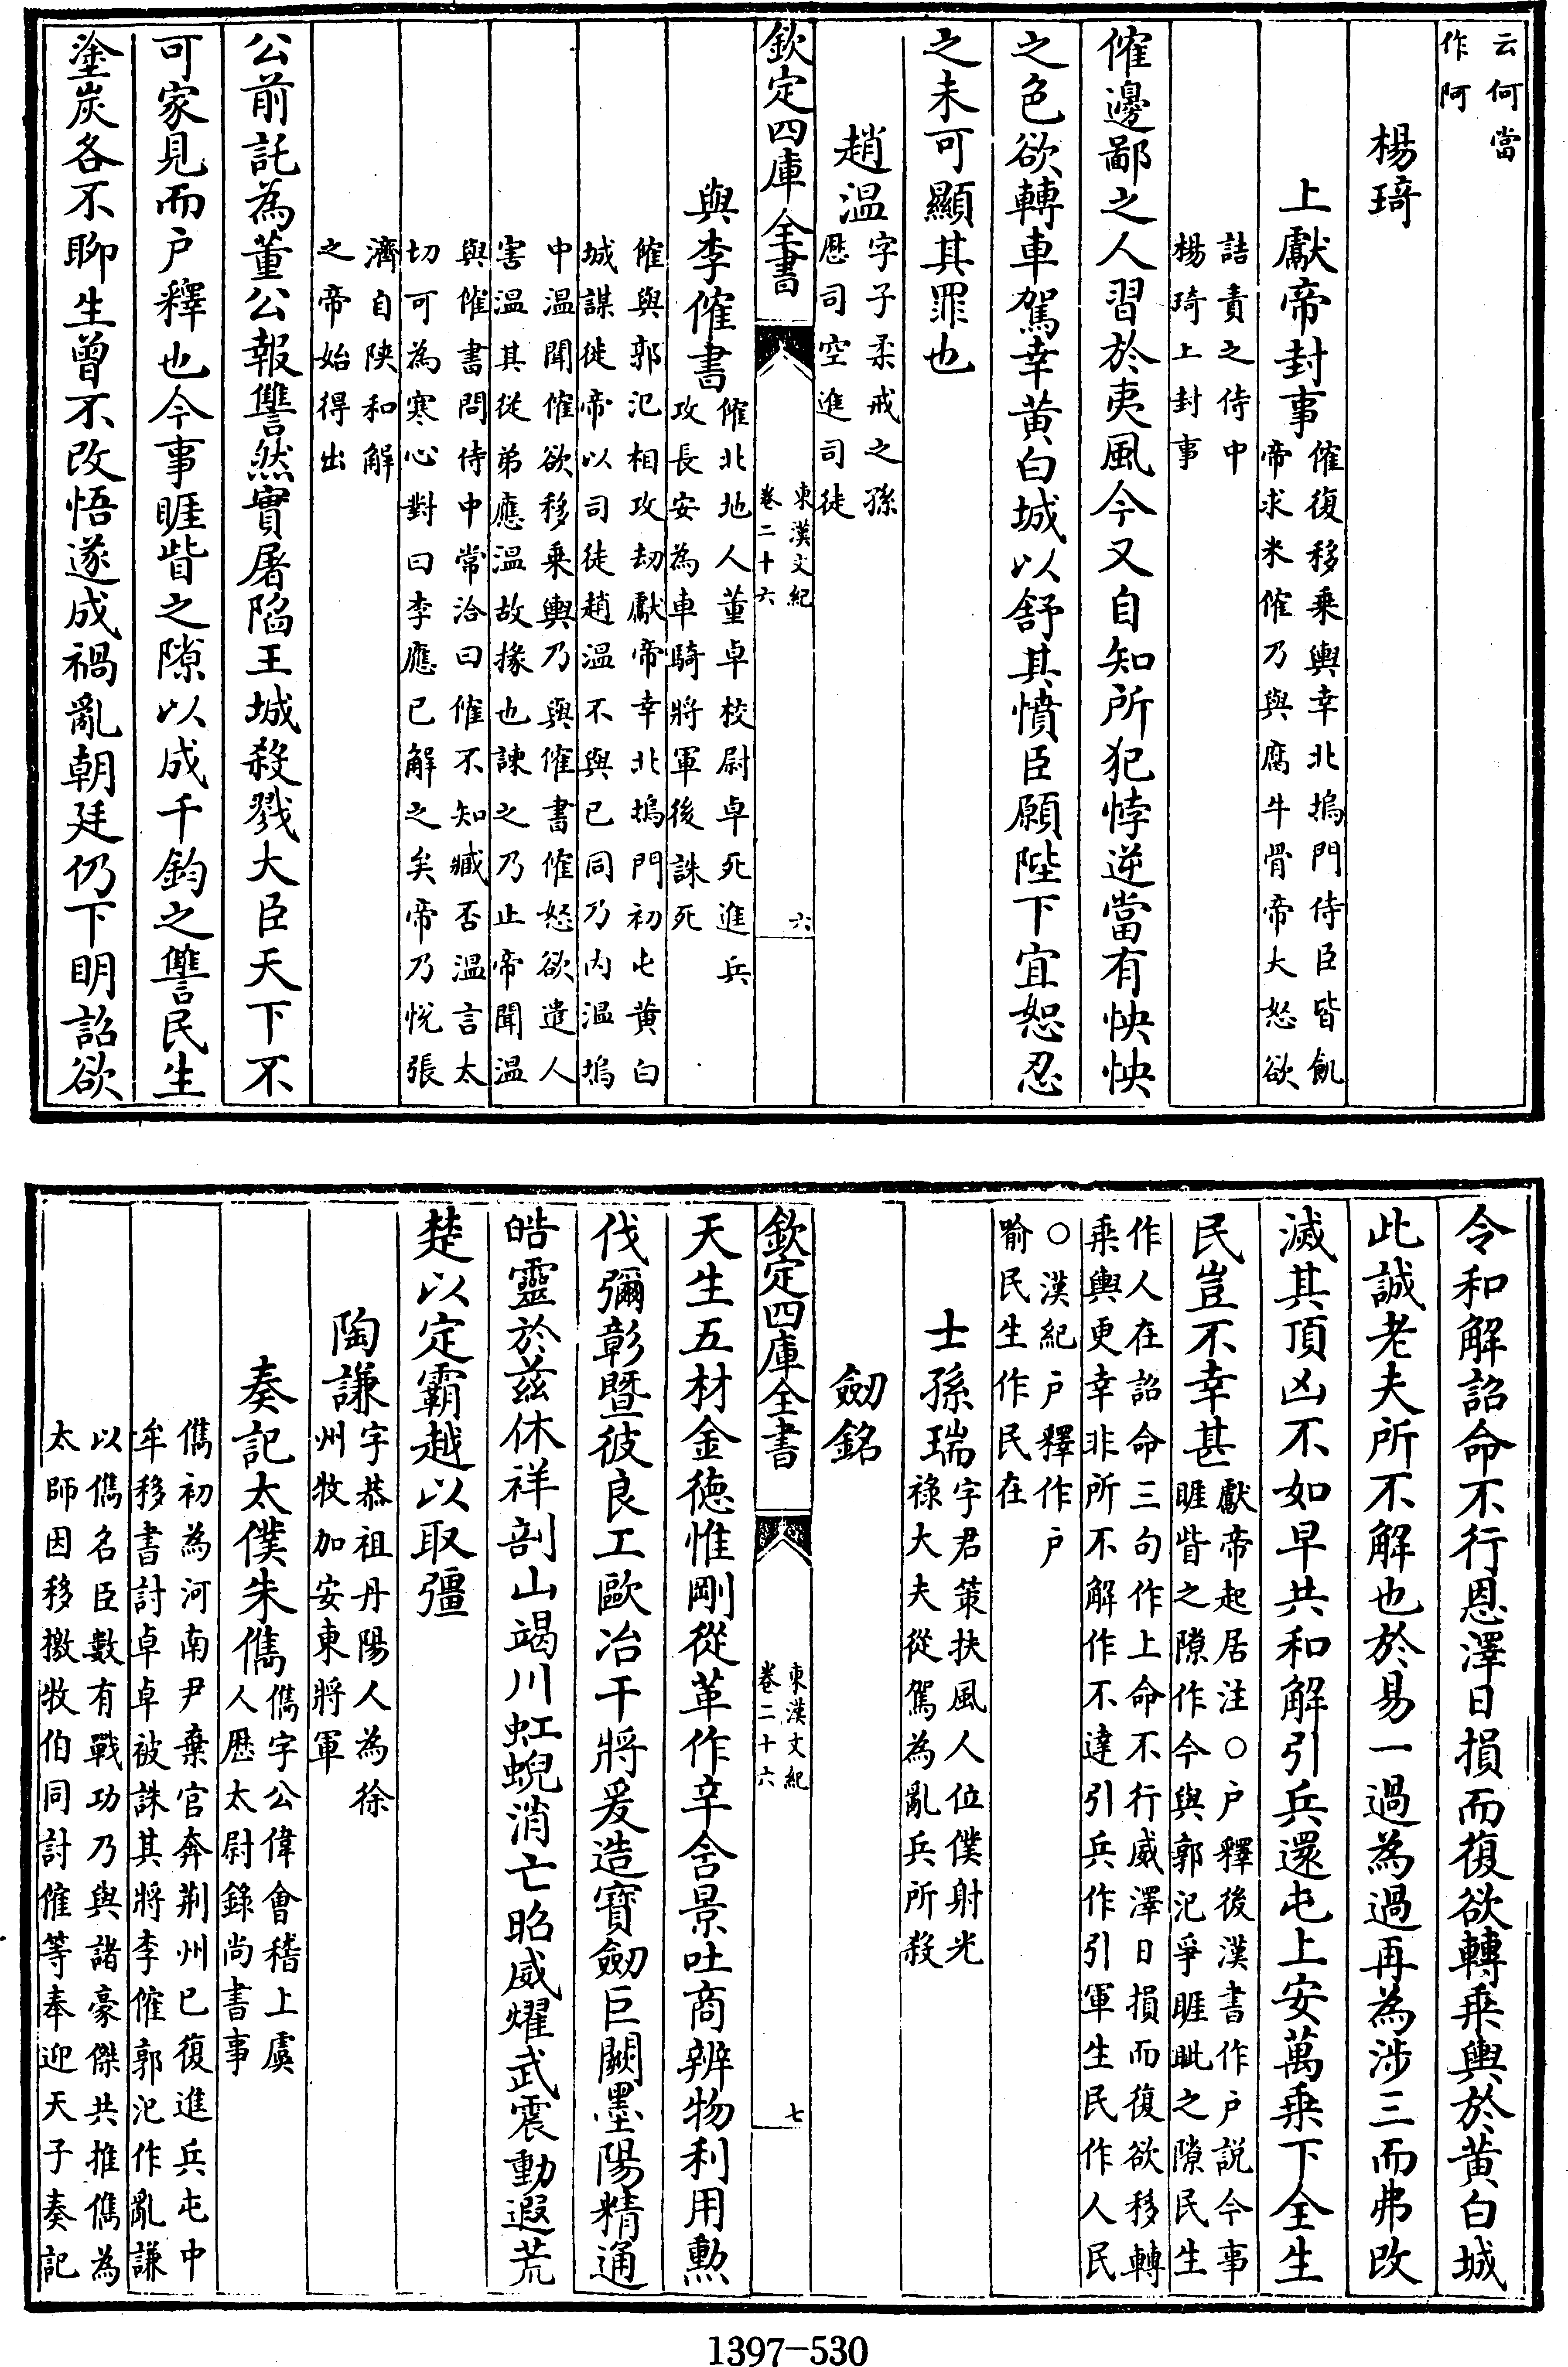 云何當
作阿
楊琦
上獻帝封事
傕復移乗輿幸北塢門侍臣皆飢
帝求米傕乃與腐牛骨帝大怒欲
詰責之侍中
楊琦上封事
傕邊鄙之人習於夷風今又自知所犯悖逆當有怏怏
之色欲轉車駕幸黄白城以舒其憤臣願陛下宜恕忍
之未可顯其罪也
趙温
字子柔戒之孫
歴司空進司徒
欽定四庫全書
東漢文紀
卷二十六
六
與李傕書
傕北地人董卓校尉卓死進兵
攻長安為車騎將軍後誅死
傕與郭汜相攻刧獻帝幸北塢門初屯黄白
城謀徙帝以司徒趙温不與已同乃内温塢
中温聞傕欲移乗輿乃與傕書傕怒欲遣人
害温其從弟應温故掾也諫之乃止帝聞温
與傕書問侍中常洽曰傕不知臧否温言太
切可為寒心對曰李應已解之矣帝乃悅張
濟自陜和解
之帝始得出
公前託為董公報讐然實屠陷王城殺戮大臣天下不
可家見而户釋也今事睚眥之隙以成千鈞之讐民生
塗炭各不聊生曾不改悟遂成禍亂朝廷仍下明詔欲
令和解詔命不行恩澤日損而復欲轉乗輿於黄白城
此誠老夫所不解也於易一過為過再為涉三而弗改
滅其頂凶不如早共和解引兵還屯上安萬乗下全生
民豈不幸甚
獻帝起居注○户釋後漢書作户説今事
睚眥之隙作今與郭汜爭睚眦之隙民生
作人在詔命三句作上命不行威澤日損而復欲移轉
乗輿更幸非所不解作不達引兵作引軍生民作人民
○漢紀户釋作户
喻民生作民在
士孫瑞
字君策扶風人位僕射光
禄大夫從駕為亂兵所殺
劒銘
欽定四庫全書
東漢文紀
卷二十六
七
天生五材金徳惟剛從革作辛含景吐商辨物利用勲
伐彌彰暨彼良工歐冶干將爰造寳劒巨闕墨陽精通
皓靈於兹休祥剖山竭川虹蜺消亡昭威燿武震動遐荒
楚以定霸越以取彊
陶謙
字恭祖丹陽人為徐
州牧加安東將軍
奏記太僕朱儁
儁字公偉會稽上虞
人歴太尉錄尚書事
儁初為河南尹棄官奔荆州已復進兵屯中
牟移書討卓卓被誅其將李傕郭汜作亂謙
以儁名臣數有戰功乃與諸豪傑共推儁為
太師因移檄牧伯同討傕等奉迎天子奏記
1397-530